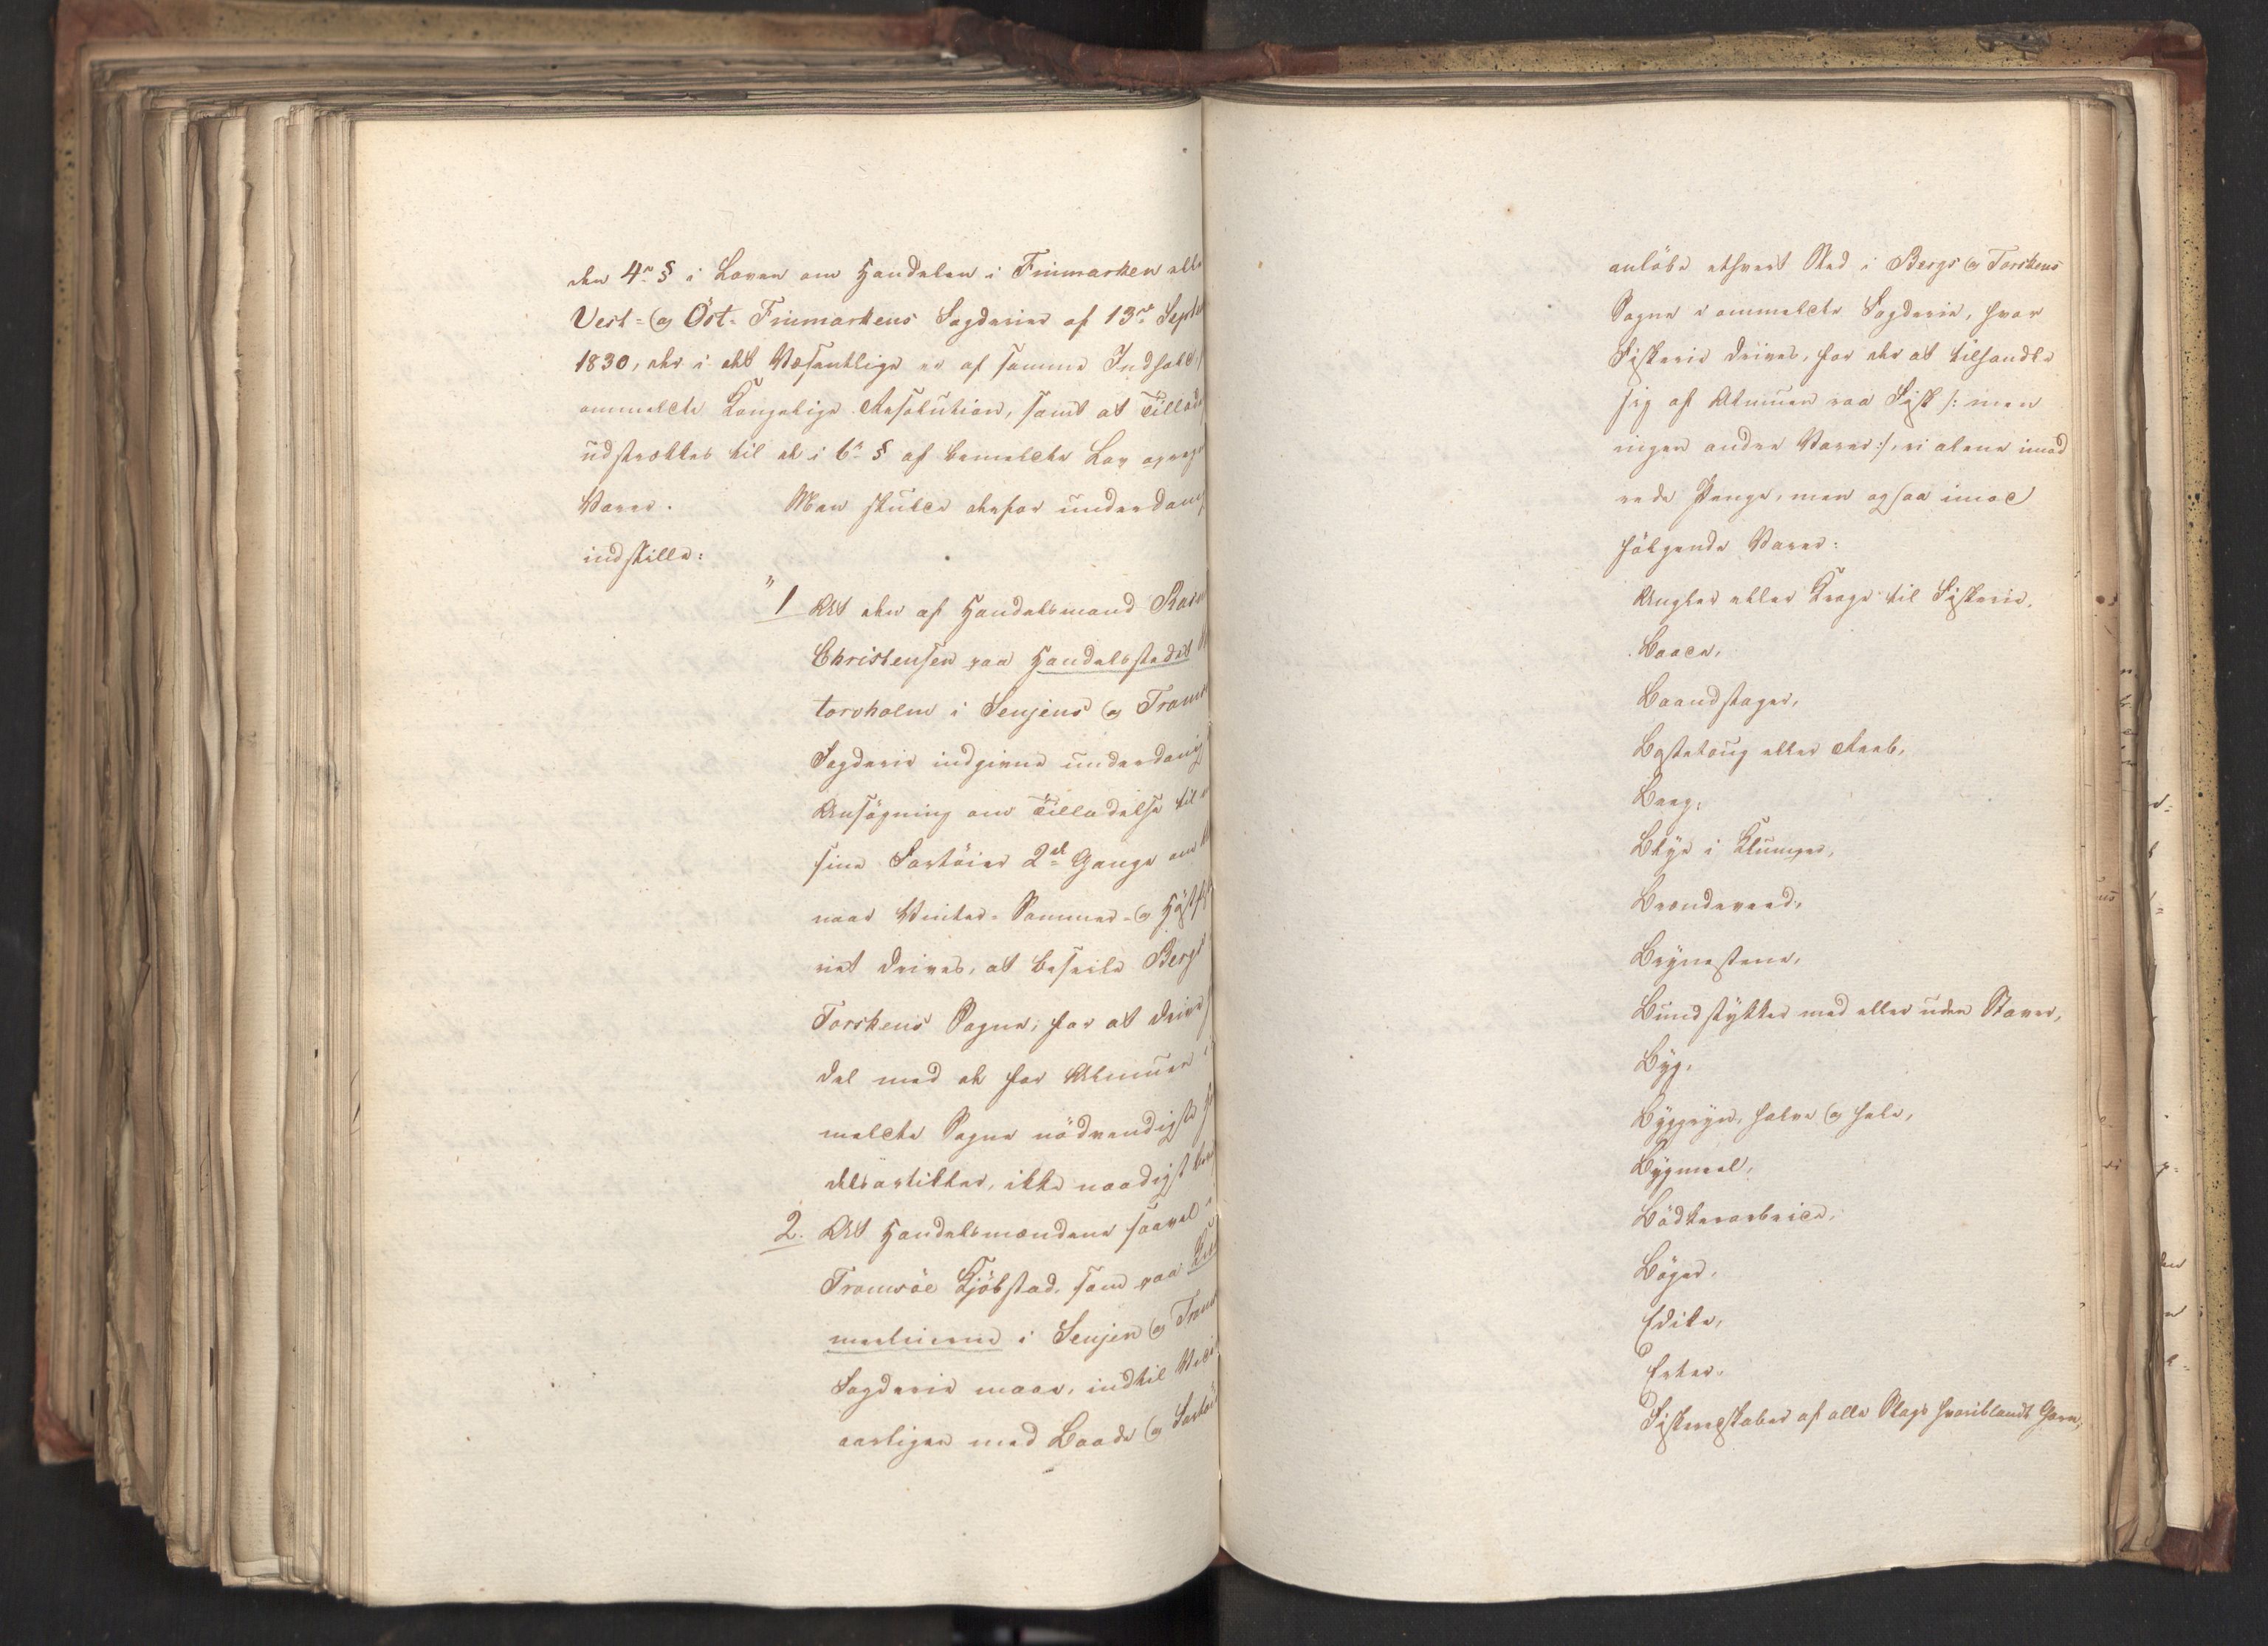 den 4de § i Loven om Handelen i Finmarken elle
Vest- og Öst-Finmarkens Fogderier af 13de Septe
1830, der i det Væsentlige er af samme Indhold,
ommeldte Kongelige Resolution, samt at Tillade
udstrækkes til de i 6te § af bemeldte Lov opregn
Varer. Man skulde derfor underdan
indstille:
"1 At den af Handelsmand
Christensen paa Handelsstedet
torvholm i Senjens og Troms
Fogderie indgivne underdanig
Ansögning om Tilladelse til
sine Fartöier 2de Gange om
naar Vinter- Sommer- og Höstf
riet drives, at beseile Bergs
Torskens Sogne, for at drive
del med de for Almuen i
meldte Sogne nödvendigste
delsartikler, ikke naadigst
2. At Handelsmændene saavel i
Tromsöe Kjöbstad, som paa
merleierne i Senjen og Troms
Fogderie maae, indtil
aarligen med Baade og Fartöi
anlöbe ethvert Sted i Bergs og Torskens
Sogne i ommeldte Fogderie, hvor
Fiskerie drives, for der at tilhandle
sig af Almuen raa Fisk /: men
ingen andre Varer:/, ei alene imod
rede Penge, men ogsaa imod
fölgende Varer:
Angler eller Kroge til Fiskerie,
Baade,
Baandstager,
Bastetoug eller Reeb,
Beeg,
Blye i Klumper,
Brændeveed,
Brynestene,
Bundstykker med eller uden Staver,
Byg,
Byggryn, halve og hele,
Bygmeel,
Bödkerarbeide,
Böger,
Edike,
Erter,
Fiskeredskaber af alle Slags hvoriblandt Garn,